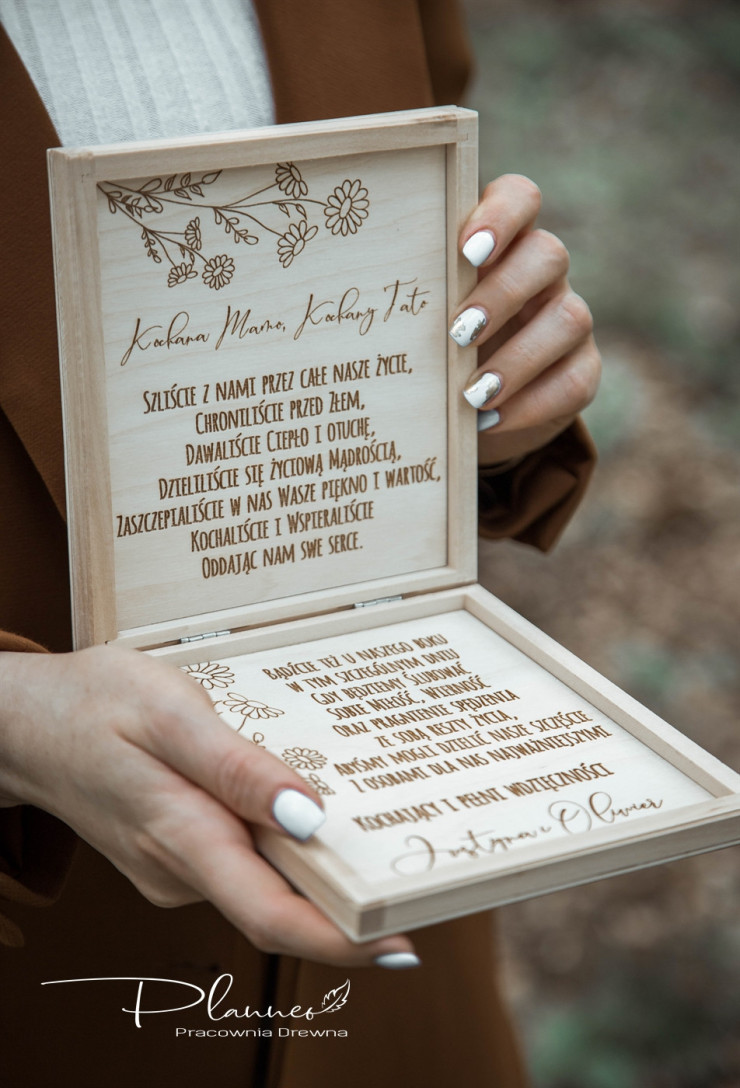 Kochana Mamo, Kochany Tato
Szliście z nami przez całe nasze życie,
Chroniliście przed Złem,
Dawaliście Ciepło i otuchę,
Dzieliliście się życiową Mądrością,
Zaszczepialiście w nas Wasze piękno i wartość,
Kochaliście i Wspieraliście
Oddając nam swe serce.
Bądźcie też u naszego boku
w tym szczególnym dniu
Gdy będziemy Ślubować
Sobie Miłość, wierność
oraz pragnienie spędzenia
ze sobą reszty życia,
abyśmy mogli dzielić nasze szczęście
z osobami dla nas najważniejszymi
Kochający i pełni wdzięczności
Justyna i Oliwier
Planneo
Pracownia Drewna